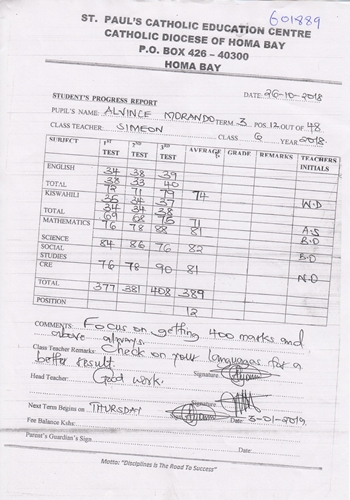 601889
ST. PAUL'S CATHOLIC EDUCATION CENTRE
CATHOLIC DIOCESE OF HOMA BAY
P.O. BOX 426 - 40300
HOMA BAY
STUDENT'S PROGRESS REPORT DATE: 26-10-2018
PUPIL'S NAME: ALVINCE MORANDO TERM 3 POS 12 OUT OF 48
CLASS TEACHER: SIMEON CLASS 6 YEAR 2018
SUBJECT 1ST TEST 2ND TEST 3RD TEST AVERAGE GRADE REMARKS TEACHERS INITIALS
ENGLISH 34 38 39
38 33 40
TOTAL 72 71 79 74
KISWAHILI 35 34 37 W.D
34 34 38
TOTAL 69 68 75 71
MATHEMATICS 76 78 88 81 A.S
SCIENCE B.D
SOCIAL STUDIES 84 86 76 82 B.D
CRE 76 78 90 81 N.D
TOTAL 377 381 408 389
POSITION 12
COMMENTS Focus on getting 400 marks and
above always.
Class Teacher Remarks: Check on your languages for a
better result. Signature
Head Teacher: Good work.
Signature
Next Term Begins on THURSDAY Date: 3-01-2019
Fee Balance Kshs:
Parent's Guardian's Sign Date
Motto: "Disciplines Is The Road To Success"